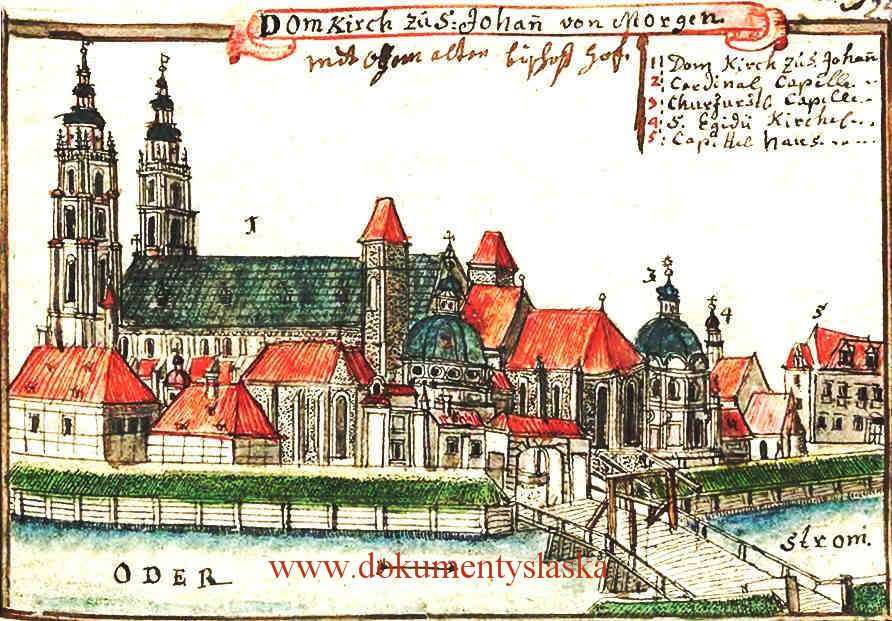 Dom Kirch zu S: Johañ von Morgen.
mit dem alten bischoff hof.
1: Dom Kirch zu S. Johañ
2: Cardinal Capelle
3: Churfürstl Capelle
4: S. Egidii Kirchel
5: Capittel haus
1
3
4
5
ODER
strom.
www.dokumentyslaska